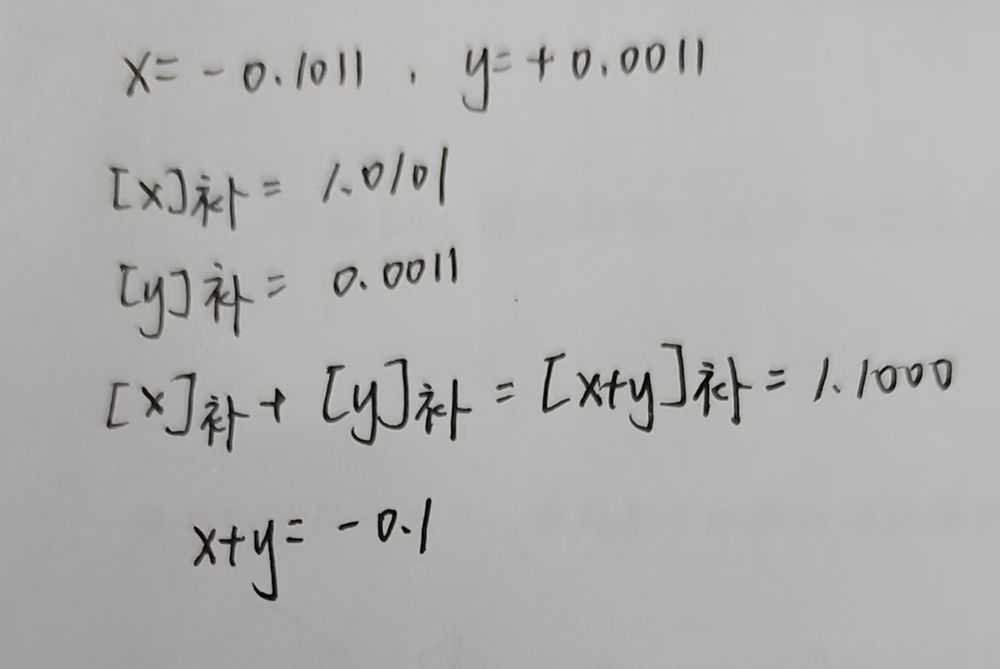 x= -0.1011 , y=+0.0011
[x]补= 1.0101
[y]补= 0.0011
[x]补+ [y]补=[x+y]补=1.1000
x+y= -0.1